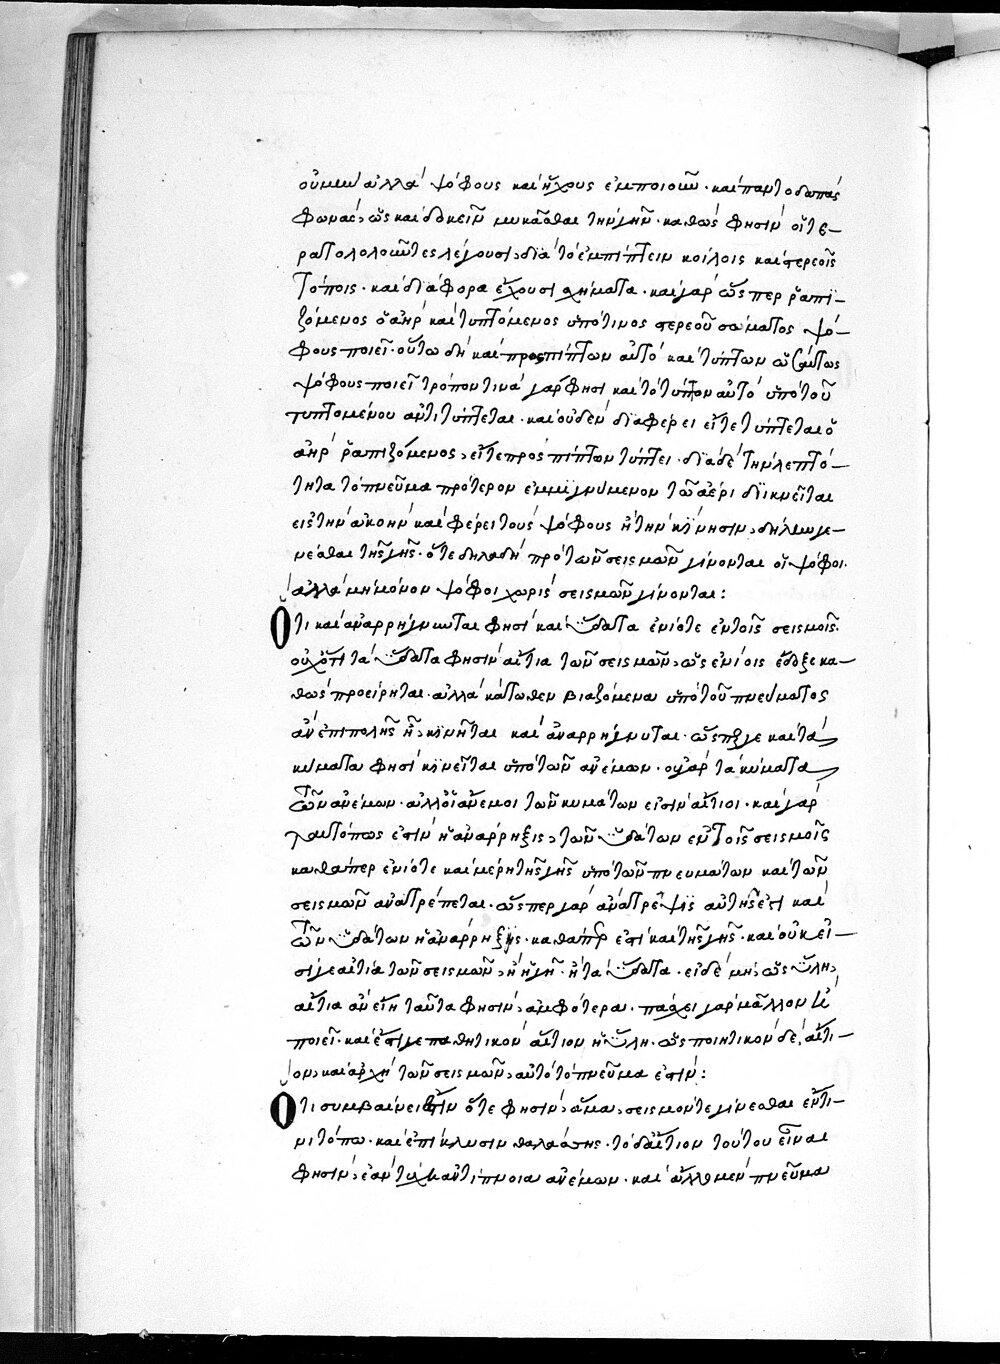 οὐ μὴν ἀλλὰ ψόφους καὶ ἤχους ἐμποιοῦν· καὶ παντοδαπὰς
φωνάς, ὡς καὶ δοκεῖν μυκᾶσθαι τὴν γῆν· καθώς φησιν οἱ τε-
ρατολολοῦντες λέγουσι, διὰ τὸ ἐμπίπτειν κοίλοις καὶ στερεοῖς
τόποις· καὶ διάφορα ἔχουσι σχήματα· καὶ γὰρ ὥσπερ ῥαπι-
ζόμενος ὁ ἀὴρ καὶ τυπτόμενος ὑπό τινος στερεοῦ σώματος ψό-
φους ποιεῖ· οὕτω δὴ καὶ προσπίπτων αὐτὸ καὶ τύπτων ὡσαύτως
ψόφους ποιεῖ τρόπον τινὰ γάρ φησι καὶ τὸ τύπτον αὐτὸ ὑπὸ τοῦ
τυπτομένου ἀντιτύπτεται· καὶ οὐδὲν διαφέρει εἴτε τύπτεται ὁ
ἀὴρ ῥαπιζόμενος, εἴτε προσπίπτων τύπτει· διὰ δὲ τὴν λεπτό-
τητα τὸ πνεῦμα πρότερον ἐμμιγνύμενον τῷ ἀέρι διικνεῖται
εἰς τὴν ἀκοὴν καὶ φέρει τοὺς ψόφους ἢ τὴν κίνησιν, δῆλον γε-
νέσθαι τῆς γῆς· ὅτε δηλαδὴ πρὸ τῶν σεισμῶν γίνονται οἱ ψόφοι·
ἀλλὰ μὴ μόνον ψόφοι χωρὶς σεισμῶν γίνονται:
Ὅτι καὶ ἀναρρήγνυται φησὶ καὶ ὕδατα ἐνίοτε ἐν τοῖς σεισμοῖς·
οὐχ ὅτι τὰ ὕδατα φησὶν αἴτια τῶν σεισμῶν, ὡς ἐνίοις ἔδοξε κα-
θὼς προείρηται· ἀλλὰ κάτωθεν βιαζόμενα ὑπὸ τοῦ πνεύματος
ἂν ἐπιπολῆς ᾖ, κινῆται καὶ ἀναρρήγνυται· ὥσπερ γε καὶ τὰ
κύματα φησὶ κινεῖται ὑπὸ τῶν ἀνέμων· οὐ γὰρ τὰ κύματα
τῶν ἀνέμων· ἀλλ' οἱ ἄνεμοι τῶν κυμάτων εἰσὶν αἴτιοι· καὶ γὰρ
ταυτόπως ἐστὶν ἡ ἀνάρρηξις, τῶν ὑδάτων ἐν τοῖς σεισμοῖς
καθάπερ ἐνίοτε καὶ μέρη τῆς γῆς ὑπὸ τῶν πνευμάτων καὶ τῶν
σεισμῶν ἀνατρέπεται· ὥσπερ γὰρ ἀνάτρεψις αὐτῆς ἐστι καὶ
τῶν ὑδάτων ἡ ἀνάρρηξις· καθάπερ ἐστὶ καὶ τῆς γῆς· καὶ οὐκ εἴ-
σι γε αἰτία τῶν σεισμῶν, ἢ ἡ γῆ· ἢ τὰ ὕδατα· εἰ δὲ μή, ὡς ὕλη,
αἴτια ἂν εἴη ταῦτα φησίν, ἀμφότερα· πάσχει γὰρ μᾶλλον ἢ
ποιεῖ· καὶ ἔστι γε παθητικὸν αἴτιον ἡ ὕλη· ὡς ποιητικὸν δὲ, αἴτι-
ον, καὶ ἀρχὴ τῶν σεισμῶν, αὐτὸ τὸ πνεῦμα ἐστίν:
Ὅτι συμβαίνει ὅτε φησίν, ἅμα, σεισμόν τε γίνεσθαι ἔν τι-
νι τόπω· καὶ ἐπίκλυσιν θαλάσσης· τὸ δ' αἴτιον τούτου εἶναι
φησίν, ἐὰν τύχη ἀντίπνοια ἀνέμων· καὶ ἄλλο μὲν πνεῦμα